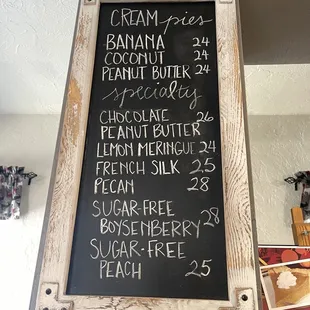 CREAM pies
BANANA 24
COCONUT 24
PEANUT BUTTER 24
specialty
CHOCOLATE 26
PEANUT BUTTER
LEMON MERINGUE 24
FRENCH SILK 25
PECAN 28
SUGAR-FREE
BOYSENBERRY 28
SUGAR-FREE
PEACH 25